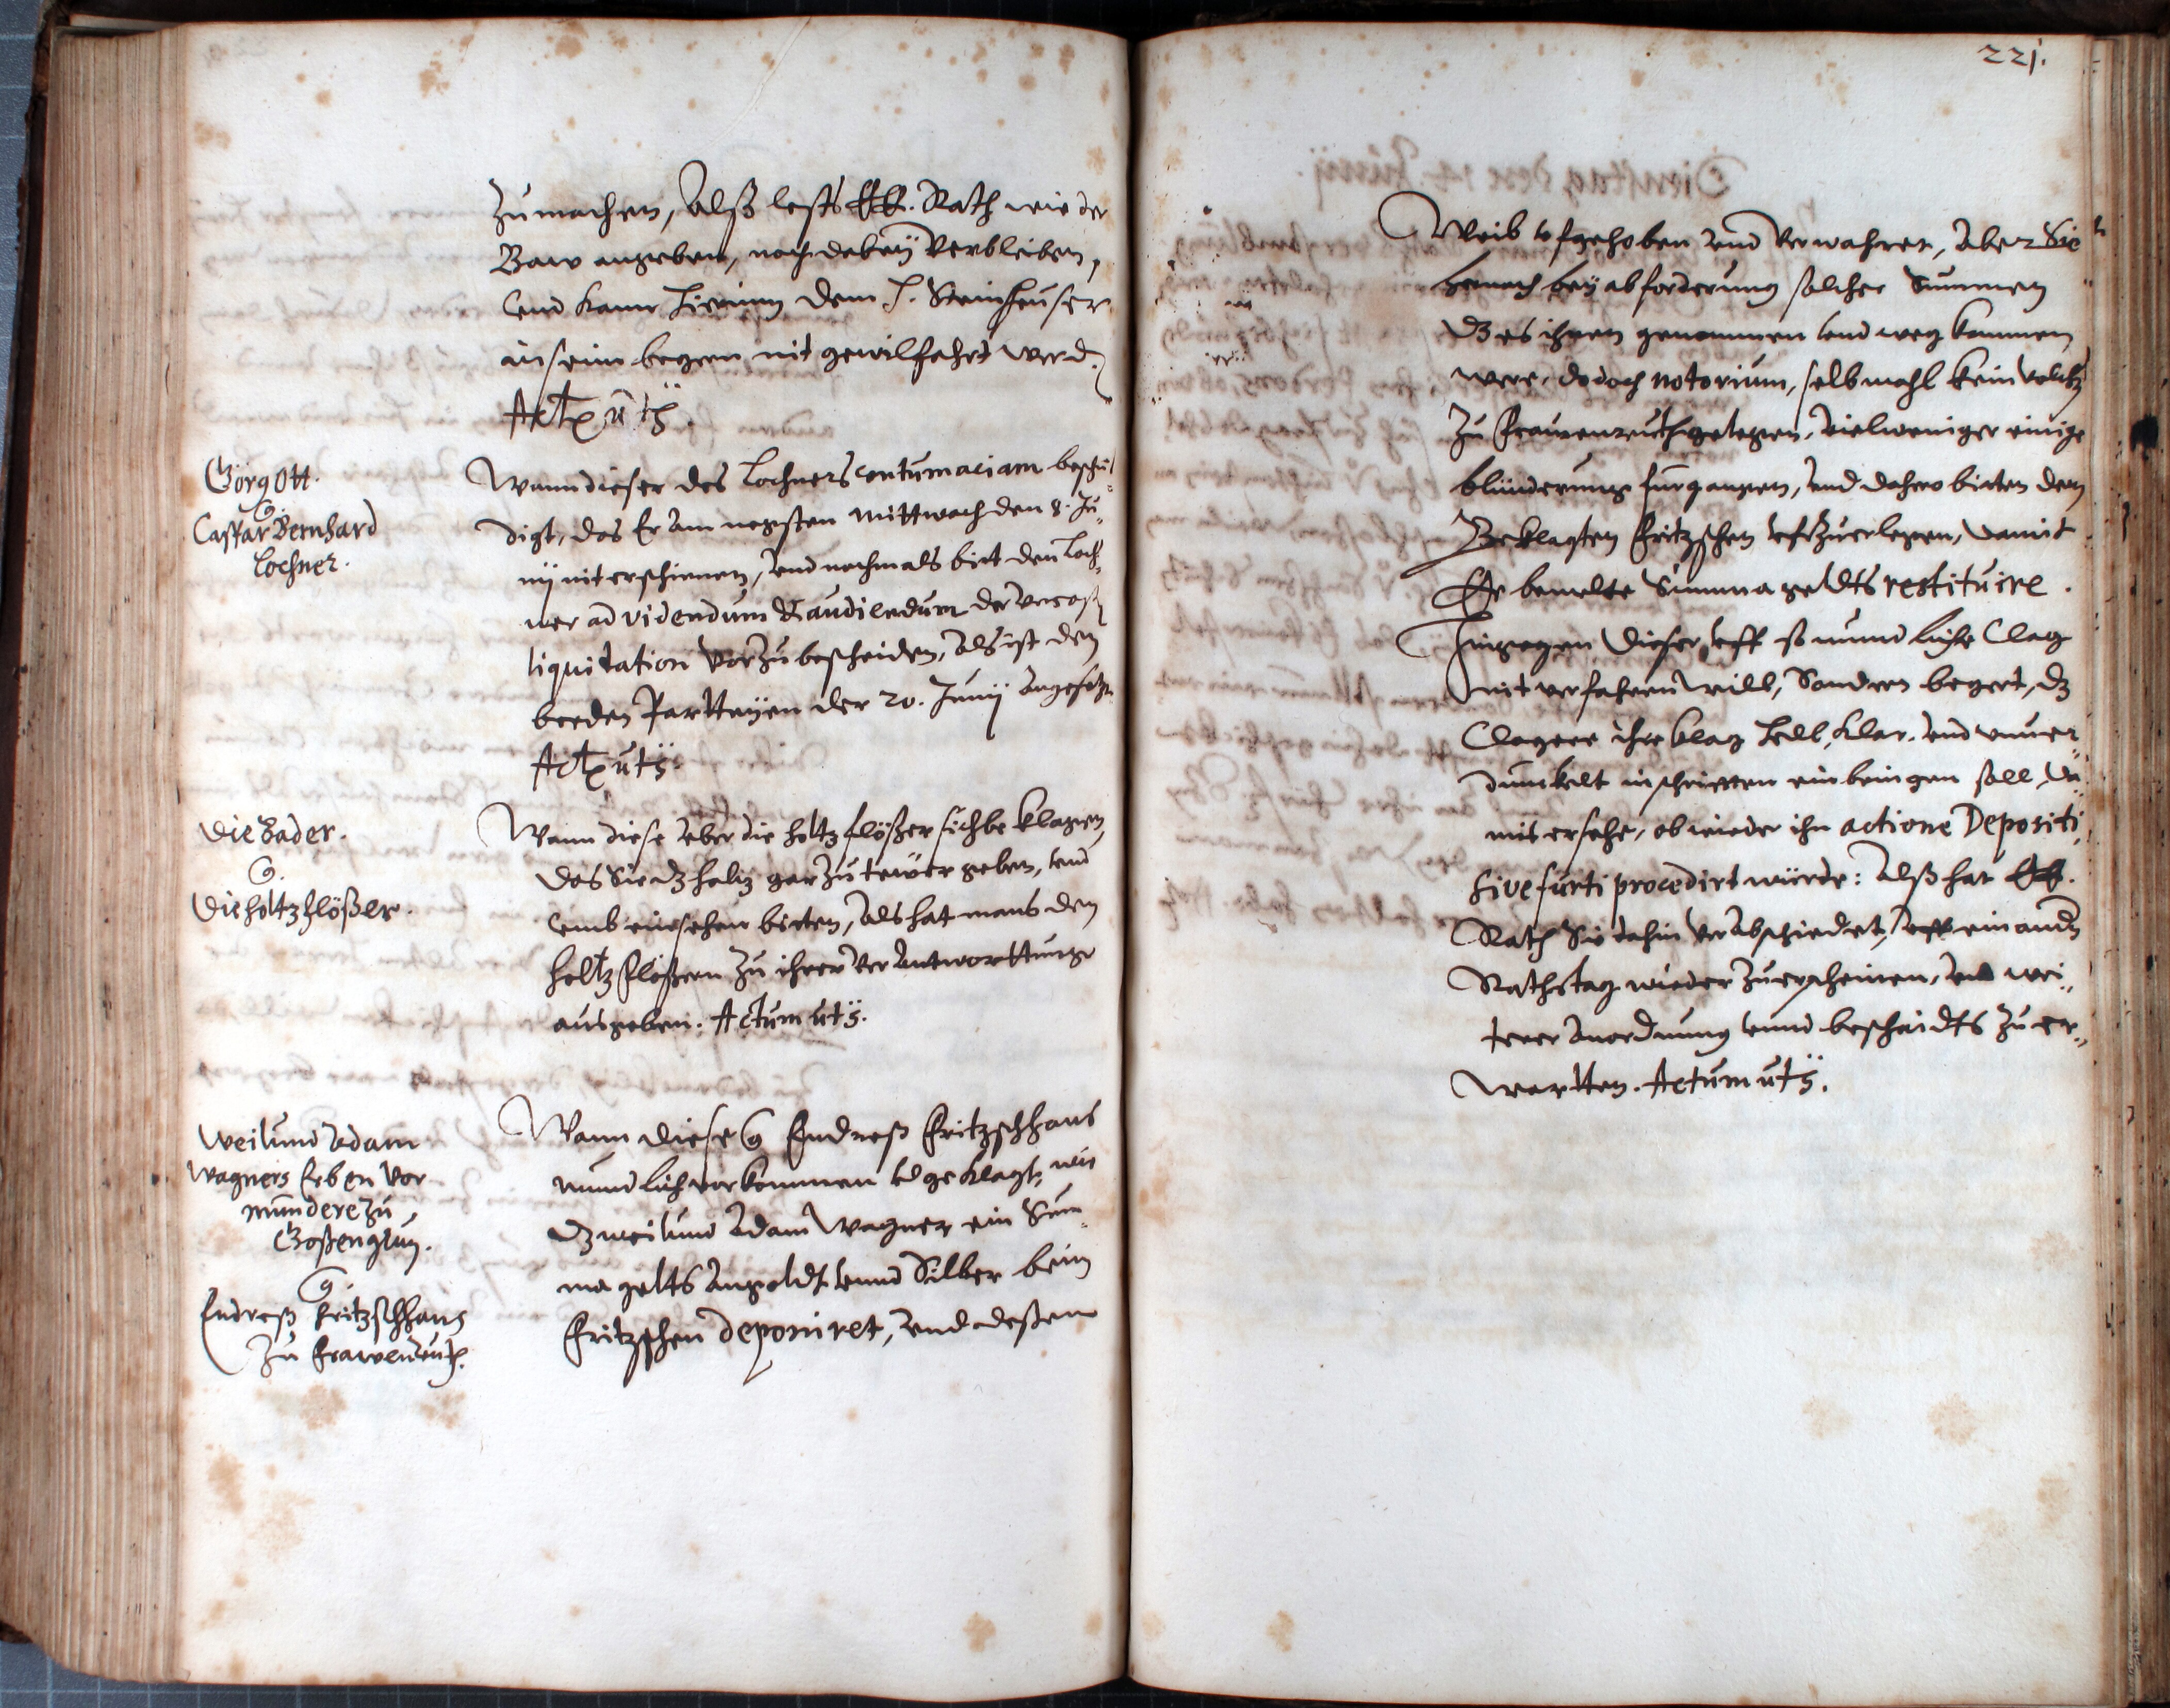 zumachen, Alß lests EE. Rath wie der
Baw angeben, noch dabeÿ verbleiben,
vnd kann hierinn dem H. Steinheuser
in seim begern nit gewilfahrt werd.
Act. uts.
Görg Ott.
G.
Caspar Bernhard
Lochner.
Wann dieser des Lochners contumaciam beschul¬
digt, das Er am negsten Mittwoch den 8. Ju¬
nij nit erschienen, vnd nochmals bitt den Loch¬
ner ad videndum & audiendum der
liquidation vorzubescheiden, Als ist den
beeden Partteyen der 20. Junij angesetzt
Act. uts.
Die Bader.
G.
Die Holtzflößer.
Wann diese vber die holtzflößer sich beklagen,
das Sie dz holtz gar zu tewer geben, vnd
vmb einsehen bitten, Als hat mans den
holtzflößern zu ihrer verantworttung
ausgeben. Actum uts.
Weilund Adam
Wagners Erben vor
mündere zu
G.
Endreß Fritzschhans
zu Frawenreuth.
Wann diese G Endreß Fritzschhans
mundlich vorkommen vnd geklagt, wie
dz weilund Adam Wagner ein Sum¬
ma gelts an goldt vnnd Silber beim
Fritzschen deponiret, vnd deßen
221.
Weib vfgehoben vnd verwahret, Aber Sie
hernach bey abforderung solcher Summen
dz es ihnen genommen vnd weg kommen
were, do doch notorium, selbmahl kein volckh
zu Frauenreuth gelegen, vielweniger einige
blünderung fürgangen, vnd dahero bitten dem
Beklagten Fritzschen vfzuerlegen, damit
Er bemelte Summa geldts restituire.
Hingegen dieser vff so mundliche Clag
nit verfahren will, Sondern begert, dz
Clagere ihre klag hell, klar, vnd vnuer¬
dunckelt in schrifften einbringen soll, da¬
mit er sehe, ob wieder ihn actione Depositi,
sive furti procedirt würde: Alß hat EE.
Rath Sie dahin verabschiedet, vff ein andn
Rathstag wieder zuerscheinen, vnd wei¬
terer Anordnung vnnd bescheidts zu er¬
wartten. Actum uts.